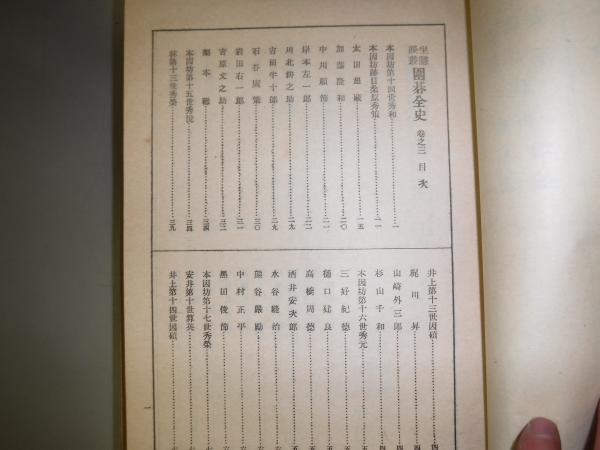 坐隠談叢 囲碁全史 巻之三 目次
本因坊第十四世秀和……一
本因坊跡目桑原秀策……一一
太田雄蔵……一五
加藤隆和……二〇
中川順節……二一
岸本左一郎……二二
川北耕之助……二九
吉田半十郎……二九
石谷広策……三〇
岩田右一郎……三一
吉原文之助……三二
鬼塚源治
本因坊第十五世秀悦……三四
林第十三世秀栄……三九
井上第十三世因碩……四
梶川昇……四
山崎外三郎……四
杉山千和……四
本因坊第十六世秀元……五
三好紀徳……五
樋口建良……五
高橋周徳……五
酒井安次郎……五
水谷縫治……五
熊谷厳勵……六
中村正平……六
黒田俊節……六
本因坊第十七世秀栄……六
安井第十世算英……七
井上第十四世因碩……七
一